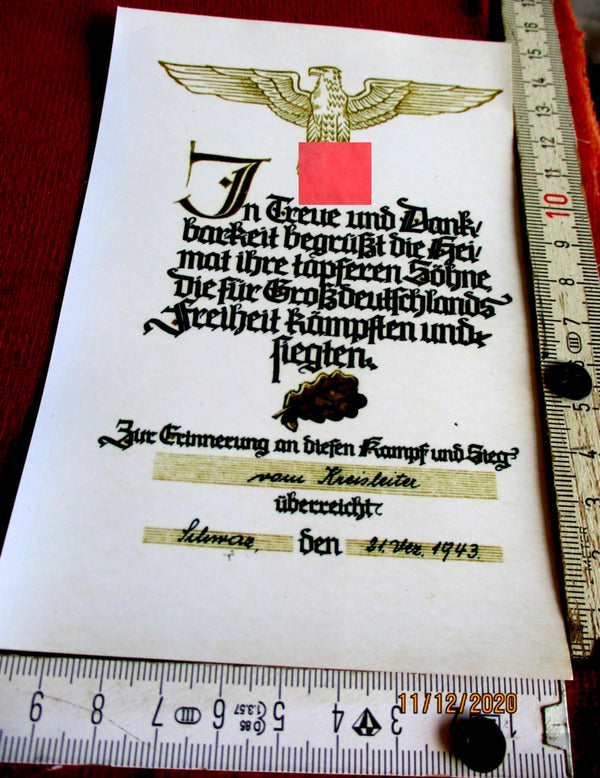 In Treue und Dank/
barkeit begrüßt die Hei/
mat ihre tapferen Söhne
die für Großdeutschlands
Freiheit kämpften und
siegten.
Zur Erinnerung an diesen Kampf und Sieg
vom Kreisleiter
überreicht
Schwaz, den 21. Dez. 1943.
16
15
14
13
12
11
10
9
8
7
5
3
2
9 8 7 6 5 4 3
11/12/2020